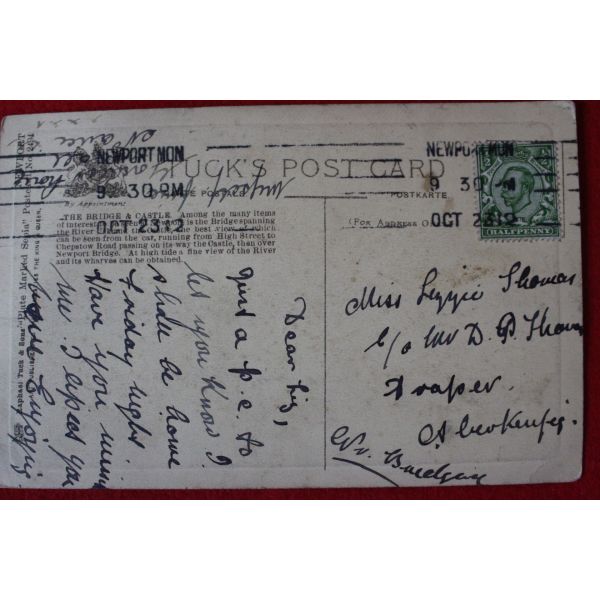 NEWPORT MON
9 30 PM
OCT 23 12
TUCK'S POST CARD
CARTE POSTALE
POSTKARTE
By Appointment
(For Address Only)
NEWPORT MON
9 30 PM
OCT 23 12
HALFPENNY
THE BRIDGE & CASTLE. Among the many items
of interest is the Bridge spanning
the River the best view of which
can be seen from the car, running from High Street to
Chepstow Road passing on its way the Castle, than over
Newport Bridge. At high tide a fine view of the River
and its wharves can be obtained.
Raphael Tuck & Sons "Plate Marked Sepia" Postcard No. 2404
NEWPORT
Dear Liz,
Just a p.c to
let you know I
shall be home
Friday night
Have you
me. I expect you
Miss Lizzie Thomas
c/o Mr D. P. Thomas
Draper.
Aberkenfig.
Nr. Bridgend